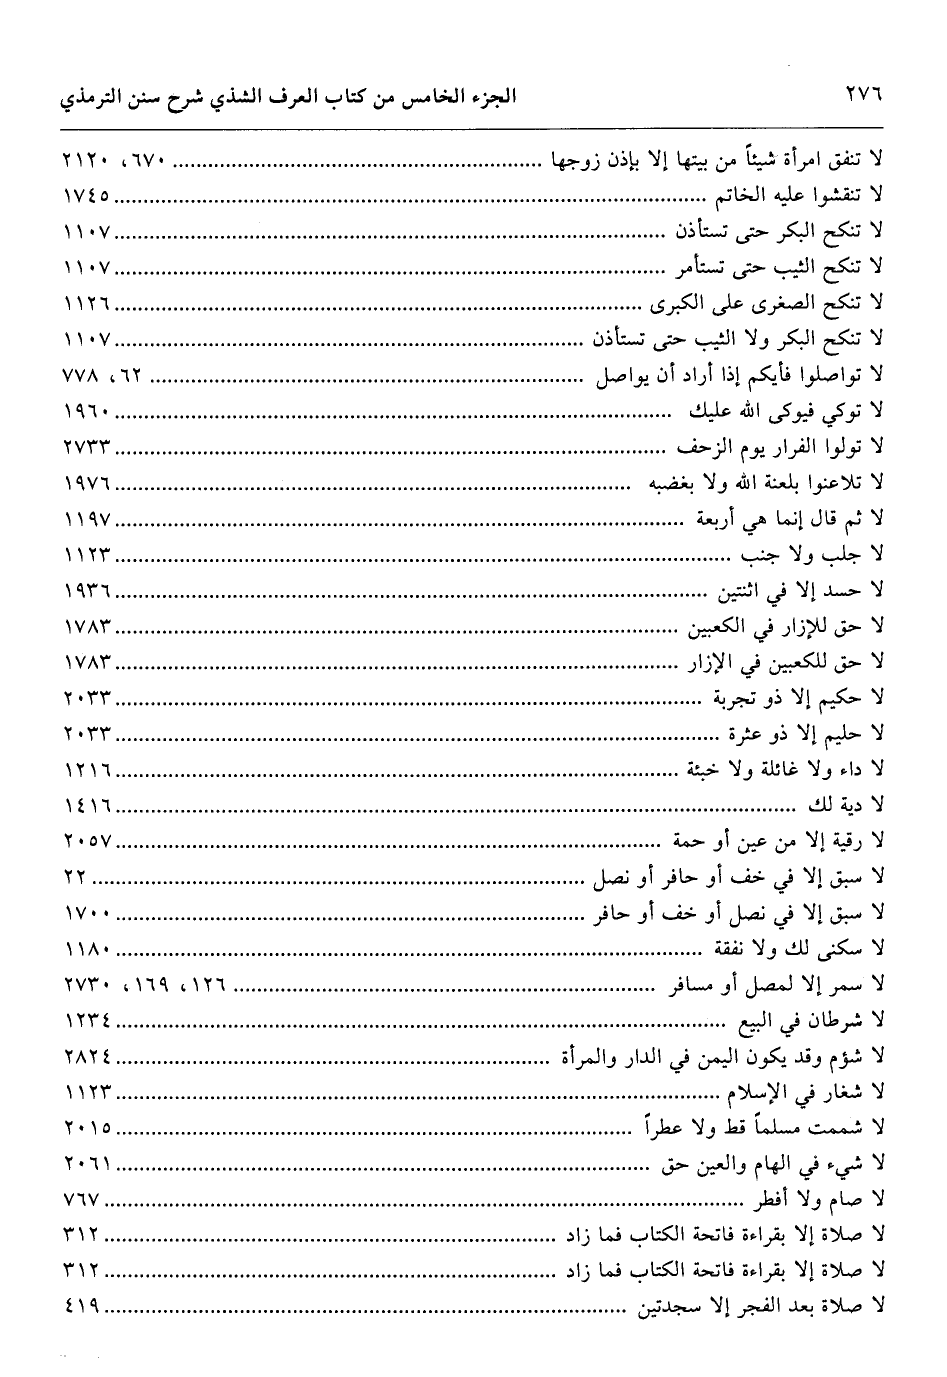 ٢٧٦ الجزء الخامس من كتاب العرف الشذي شرح سنن الترمذي
لا تنفق امرأة شيئاً من بيتها إلا بإذن زوجها ........ ٦٧٠، ٢١٢٠
لا تنقشوا عليه الخاتم ........ ١٧٤٥
لا تنكح البكر حتى تستأذن ........ ١١٠٧
لا تنكح الثيب حتى تستأمر ........ ١١٠٧
لا تنكح الصغرى على الكبرى ........ ١١٢٦
لا تنكح البكر ولا الثيب حتى تستأذن ........ ١١٠٧
لا تواصلوا فأيكم إذا أراد أن يواصل ........ ٦٢، ٧٧٨
لا توكي فيوكى الله عليك ........ ١٩٦٠
لا تولوا الفرار يوم الزحف ........ ٢٧٣٣
لا تلاعنوا بلعنة الله ولا بغضبه ........ ١٩٧٦
لا ثم قال إنما هي أربعة ........ ١١٩٧
لا جلب ولا جنب ........ ١١٢٣
لا حسد إلا في اثنتين ........ ١٩٣٦
لا حق للإزار في الكعبين ........ ١٧٨٣
لا حق للكعبين في الإزار ........ ١٧٨٣
لا حكيم إلا ذو تجربة ........ ٢٠٣٣
لا حليم إلا ذو عثرة ........ ٢٠٣٣
لا داء ولا غائلة ولا خبثة ........ ١٢١٦
لا دية لك ........ ١٤١٦
لا رقية إلا من عين أو حمة ........ ٢٠٥٧
لا سبق إلا في خف أو حافر أو نصل ........ ٢٢
لا سبق إلا في نصل أو خف أو حافر ........ ١٧٠٠
لا سكنى لك ولا نفقة ........ ١١٨٠
لا سمر إلا لمصل أو مسافر ........ ١٢٦، ١٦٩، ٢٧٣٠
لا شرطان في البيع ........ ١٢٣٤
لا شؤم وقد يكون اليمن في الدار والمرأة ........ ٢٨٢٤
لا شغار في الإسلام ........ ١١٢٣
لا شممت مسلماً قط ولا عطراً ........ ٢٠١٥
لا شيء في الهام والعين حق ........ ٢٠٦١
لا صام ولا أفطر ........ ٧٦٧
لا صلاة إلا بقراءة فاتحة الكتاب فما زاد ........ ٣١٢
لا صلاة إلا بقراءة فاتحة الكتاب فما زاد ........ ٣١٢
لا صلاة بعد الفجر إلا سجدتين ........ ٤١٩